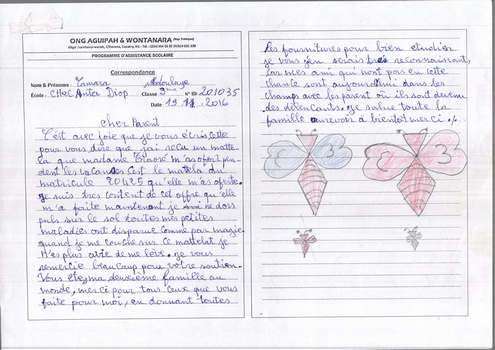 ONG AGUIPAH & WONTANARA
PROGRAMME D'ASSISTANCE SCOLAIRE
Correspondance
Nom & Prénoms: Camara Abdoulaye
École: CHEC Anta Diop Classe 9ème N° ID 201035
Date: 19.11.2016
Cher Parent
C'est avec joie que je vous écris cette
pour vous dire que j'ai recu un matte
la que madame Traoré m'as oport pen-
dent les vacances c'est le matela du
matricule 20425 qu'elle m'as oferte.
je suis tres contenst de cet offre qu'elle
m'a faite maintenant je ne dors
puls sur le sol toutes mes petites
maladies ont disparue comme par magie
quand je me couche sur ce mattelat je
n'es plus envie de me lève. je vous
remercie beaucoup pour votre soutien.
Vous ete ma deuxieme famille au
monde, merci pour tous ceux que vous
faite pour moi, en donnant toutes
les fournitures pour bien etudier
je vous en serais tres reconnaissant,
car mes ami qui n'ont pas eu cette
chance sont aujourd'hui dans les
champs avec les parent où ils sont devenu
des delencants. je salue toute la
famille aurevoir à bientôt merci.